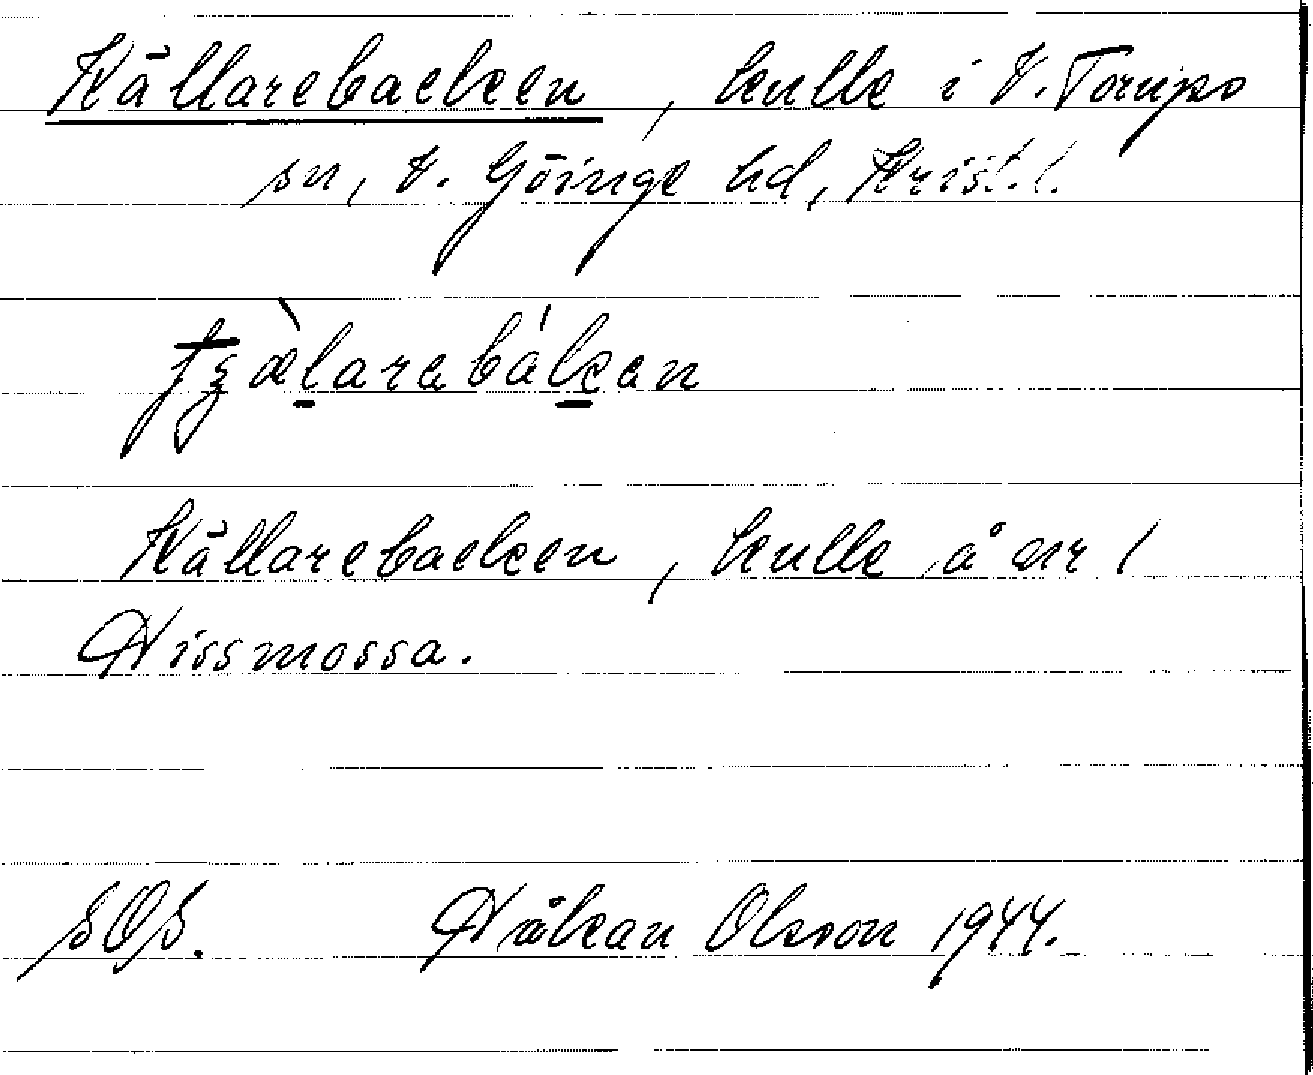 Källarebacken, kulle i V. Torups
sn, V. Göinge hd, Krist. l.
Källarebacken, kulle å nr 1
Hissmossa.
SOS. Håkan Olsson 1944.